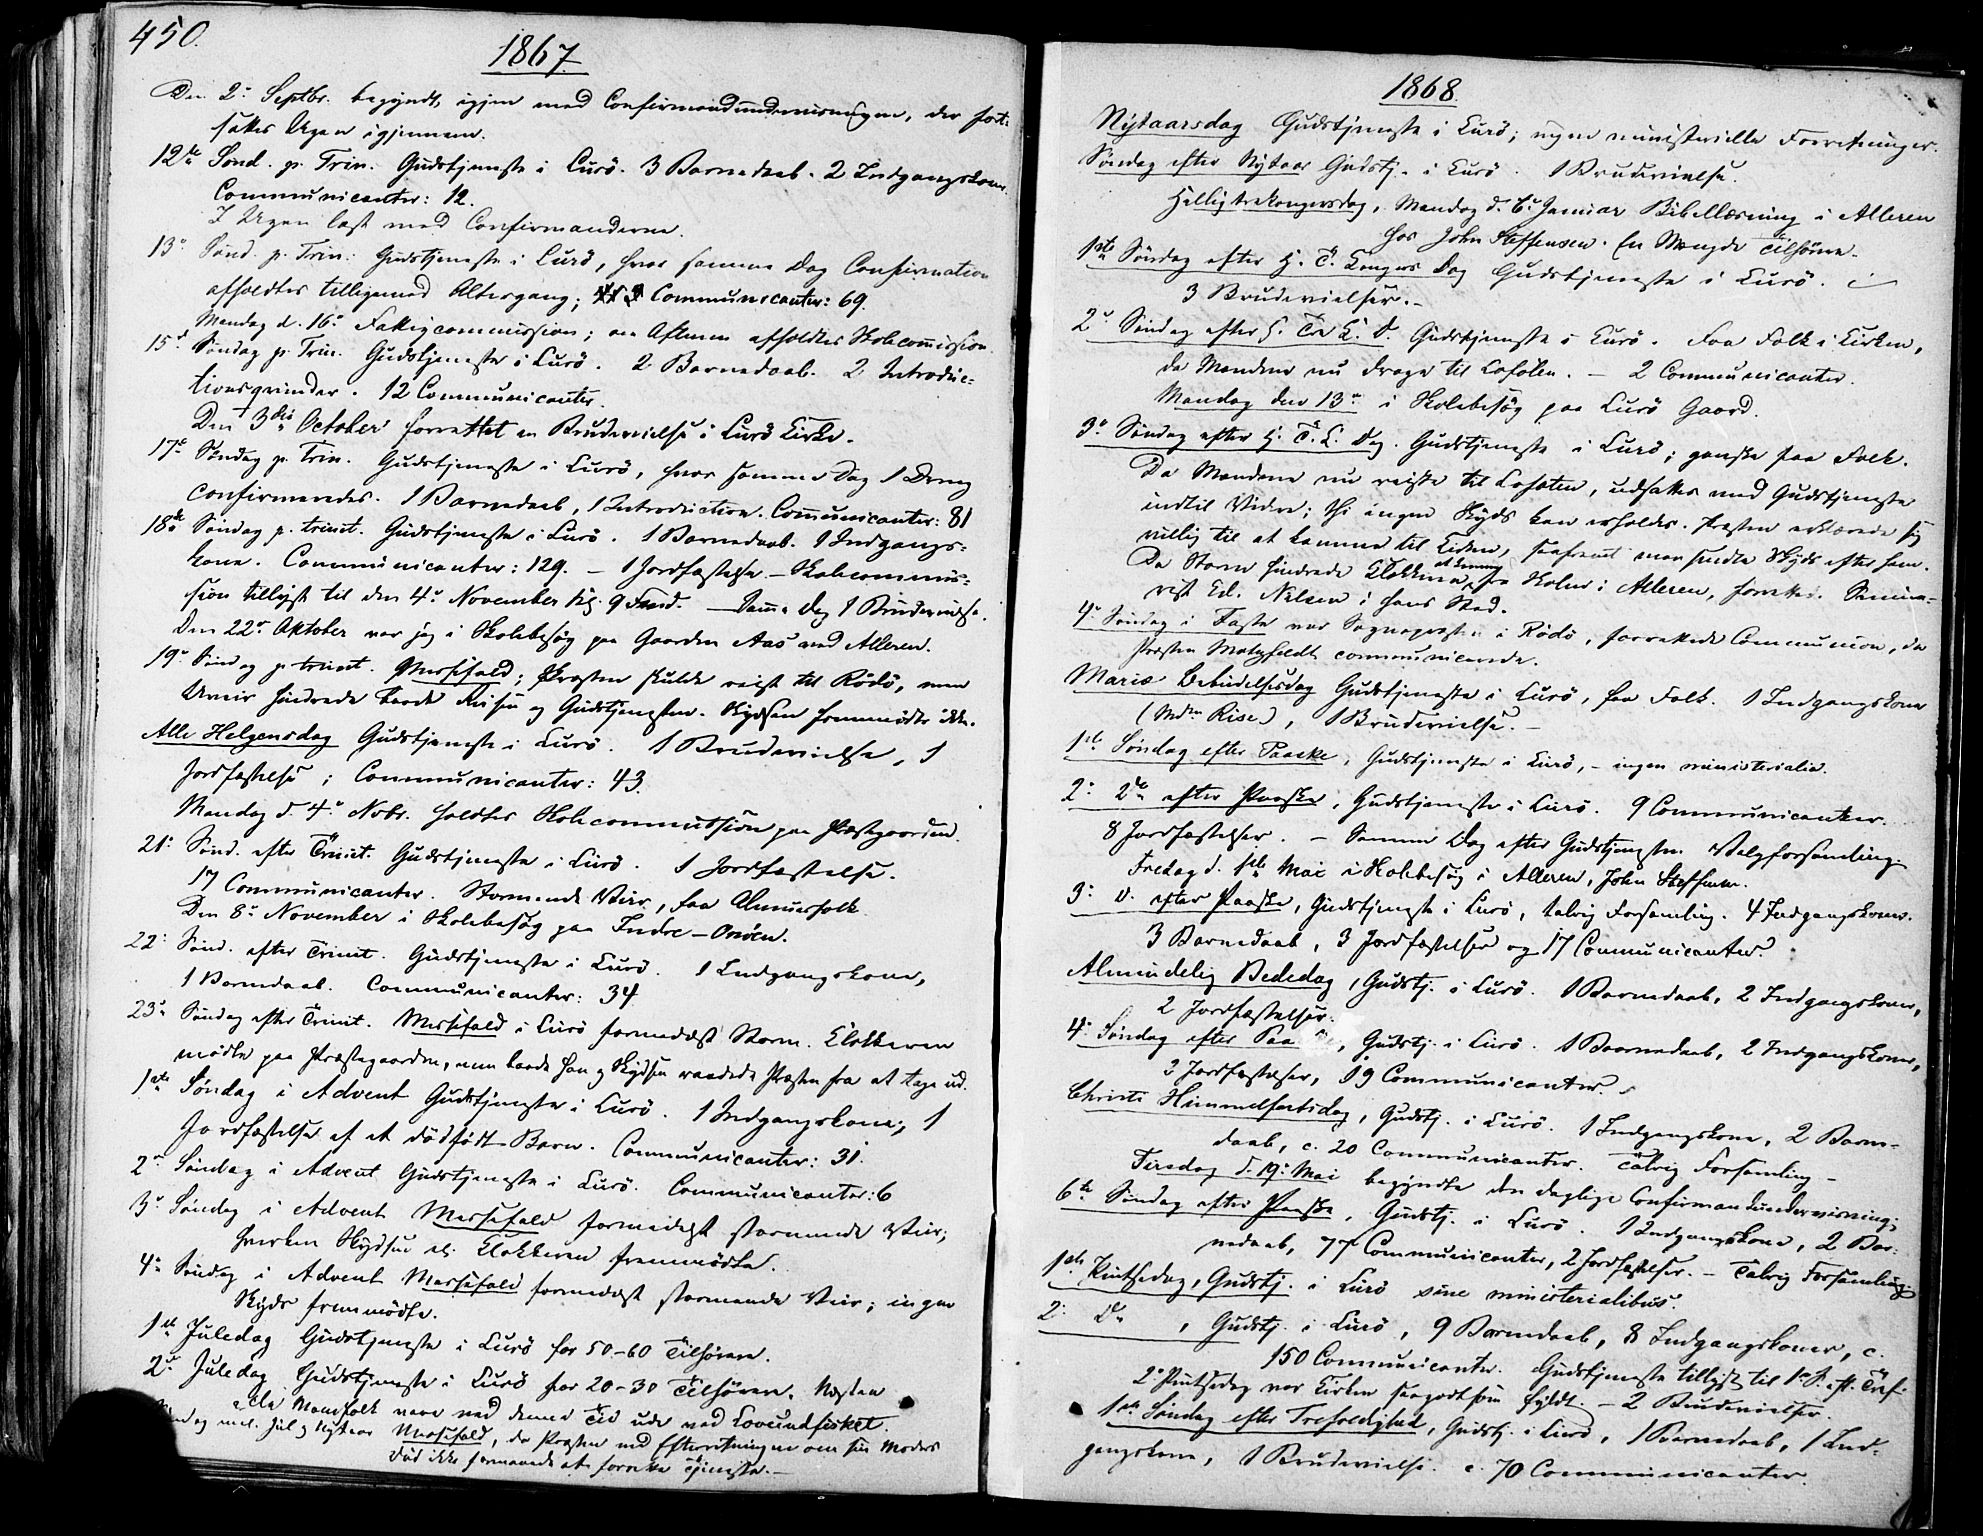 450.
1867.
Den 2. Septbr. begyndt igjen med Confirmandundervisningen, der fort-
sattes Ugen igjennem.
12te Sønd. p. Trin. Gudstjeneste i Lurö. 3 Barnedaab. 2 Indgangskoner.
Communicanter: 12.
I Ugen læst med Confirmanderne.
13de Sønd. p. Trin. Gudstjeneste i Lurö, hvor samme Dag Confirmation
afholdtes tilligemed Altergang; Communicanter: 69.
Mandag d. 16de Fattigcommission; om Aftenen afholdtes Skolecommission.
15d. Søndag p. Trin. Gudstjeneste i Lurö. 2 Barnedaab. 2 Introduc-
tionsqvinder. 12 Communicanter.
Den 3die October forrettet en Brudevielse i Lurö Kirke.
17de Søndag p. Trin. Gudstjeneste i Lurö, hvor samme Dag 1 Dreng
confirmeredes. 1 Barnedaab, 1 Introduction. Communicanter: 81
18de Søndag p. trinit. Gudstjeneste i Lurö. 1 Barnedaab. 1 Indgangs-
kone. Communicanter: 129. – 1 Jordfæstelse – Skolecommis-
sion tillyst til den 4de November Kl. 9 Fmd. – Samme Dag 1 Brudevielse.
Den 22de Oktober var jeg i Skolebesøg paa Gaarden Aas ved Alleren.
19de Søndag p. trinit. Messefald; Præsten skulde reist til Rödö, men
Uveir hindrede baade Reisen og Gudstjenesten. Skydsen fremmødte ikke.
Alle Helgensdag Gudstjeneste i Lurö. 1 Brudevielse, 1
Jordfæstelse; Communicanter: 43.
Mandag d. 4de Novbr. holdtes Skolecommission paa Præstgaarden.
21de Sønd. efter Trinit. Gudstjeneste i Lurö. 1 Jordfæstelse.
17 Communicanter. Stormende Veir, faa Almuesfolk.
Den 8de November i Skolebesøg paa Indre-Onöen.
22de Sønd. efter Trinit. Gudstjeneste i Lurö. 1 Indgangskone,
1 Barnedaab. Communicanter: 34
23de Søndag efter Trinit. Messefald i Lurö formedelst Storm. Klokkeren
mødte paa Præstegaarden, men baade han og Skydsen raadede Præsten fra at tage ud.
1ste Søndag i Advent Gudstjeneste i Lurö. 1 Indgangskone; 1
Jordfæstelse af et dödfödt Barn. Communicanter: 31.
2den Søndag i Advent Gudstjeneste i Lurö. Communicanter: 6
3die Søndag i Advent Messefald formedelst stormende Veir;
hverken Skydsen el. Klokkeren fremmødte.
4de Søndag i Advent Messefald formedelst stormende Veir; ingen
Skyds fremmødte.
1ste Juledag Gudstjeneste i Lurö for 50-60 Tilhörere.
2den Juledag Gudstjeneste i Lurö for 20-30 Tilhörere. Næsten
alle Mandfolk vare ved denne Tid ude ved Lovundfisket.
Søndag mel. Jul og Nytaar Messefald, da Præsten ved Efterretningen om sin Moders
Död ikke formaaede at forrette Tjeneste.–
1868.
Nytaarsdag Gudstjeneste i Lurö; ingen ministerielle Forretninger.
Søndag efter Nytaar Gudstj. i Lurö. 1 Brudevielse.
Helligtrekongersdag, Mandag d. 6te Januar Bibellæsning i Alleren
hos John Steffensen. En Mængde Tilhörere.
1ste Søndag efter H. T. Kongers Dag Gudstjeneste i Lurö.
3 Brudevielser.–
2den Søndag efter H. Tre K. D. Gudstjeneste i Lurö. Faa Folk i Kirken,
da Mændene nu drage til Lofoten. – 2 Communicanter.
Mandag den 13de i Skolebesøg paa Lurö Gaard.
3die Søndag efter H. T. K. Dag. Gudstjeneste i Lurö; ganske faa Folk.
Da Mændene nu reiste til Lofoten, udsættes med Gudstjeneste
indtil Videre; thi ingen Skyds kan erholdes. Præsten erklærede sig
villig til at komme til Kirken, saafremt man sendte Skyds efter ham.
Da Storm hindrede Klokkeren at komme fra Skolen i Alleren, forrettede Semina-
rist Ed. Nilsen i hans Sted.
4de Søndag i Faste var Sognepræsten i Rödö, forrettede Communion, da
Præsten Motzfeldt communicerede.
Mariæ Bebudelsesdag Gudstjeneste i Lurö, faa Folk. 1 Indgangskone
(Mdm Rise), 1 Brudevielse.–
1ste Søndag efter Paaske, Gudstjeneste i Lurö, – ingen ministerialia.
2den Do efter Paaske, Gudstjeneste i Lurö. 9 Communicanter.
8 Jordfæstelser. – Samme Dag efter Gudstjenesten Valgforsamling.
Fredag d. 1ste Mai i Skolebesøg i Alleren, John Steffensen.
3die D. efter Paaske, Gudstjeneste i Lurö, talrig Forsamling. 4 Indgangskoner.
3 Barnedaab, 3 Jordfæstelser og 17 Communicanter.
Almindelig Bededag, Gudstj. i Lurö. 1 Barnedaab, 2 Indgangskoner,
2 Jordfæstelser.
4de Søndag efter Paaske, Gudstj. i Lurö. 1 Barnedaab, 2 Indgangskoner,
3 Jordfæstelser, 19 Communicanter.
Christi Himmelfartsdag, Gudstj. i Lurö. 1 Indgangskone, 2 Barne-
daab, c. 20 Communicanter. Talrig Forsamling –
Tirsdag d. 19de Mai begyndte den daglige Confirmandundervisning.
6te Søndag efter Paaske, Gudstj. i Lurö. 1 Indgangskone, 2 Bar-
nedaab, 77 Communicanter, 2 Jordfæstelser. – Talrig Forsamling.
1ste Pintsedag, Gudstj. i Lurö sine ministerialibus.
2den Do, Gudstj. i Lurö, 9 Barnedaab, 8 Indgangskoner, c.
150 Communicanter. Gudstjeneste tillyst til 1ste S. eft. Tref.
2den Pintsedag var Kirken saagodtsom fyldt. – 2 Brudevielser.
1ste Søndag efter Trefoldighed, Gudstj. i Lurö, 1 Barnedaab, 1 Ind-
gangskone, 1 Brudevielse. c. 70 Communicanter.